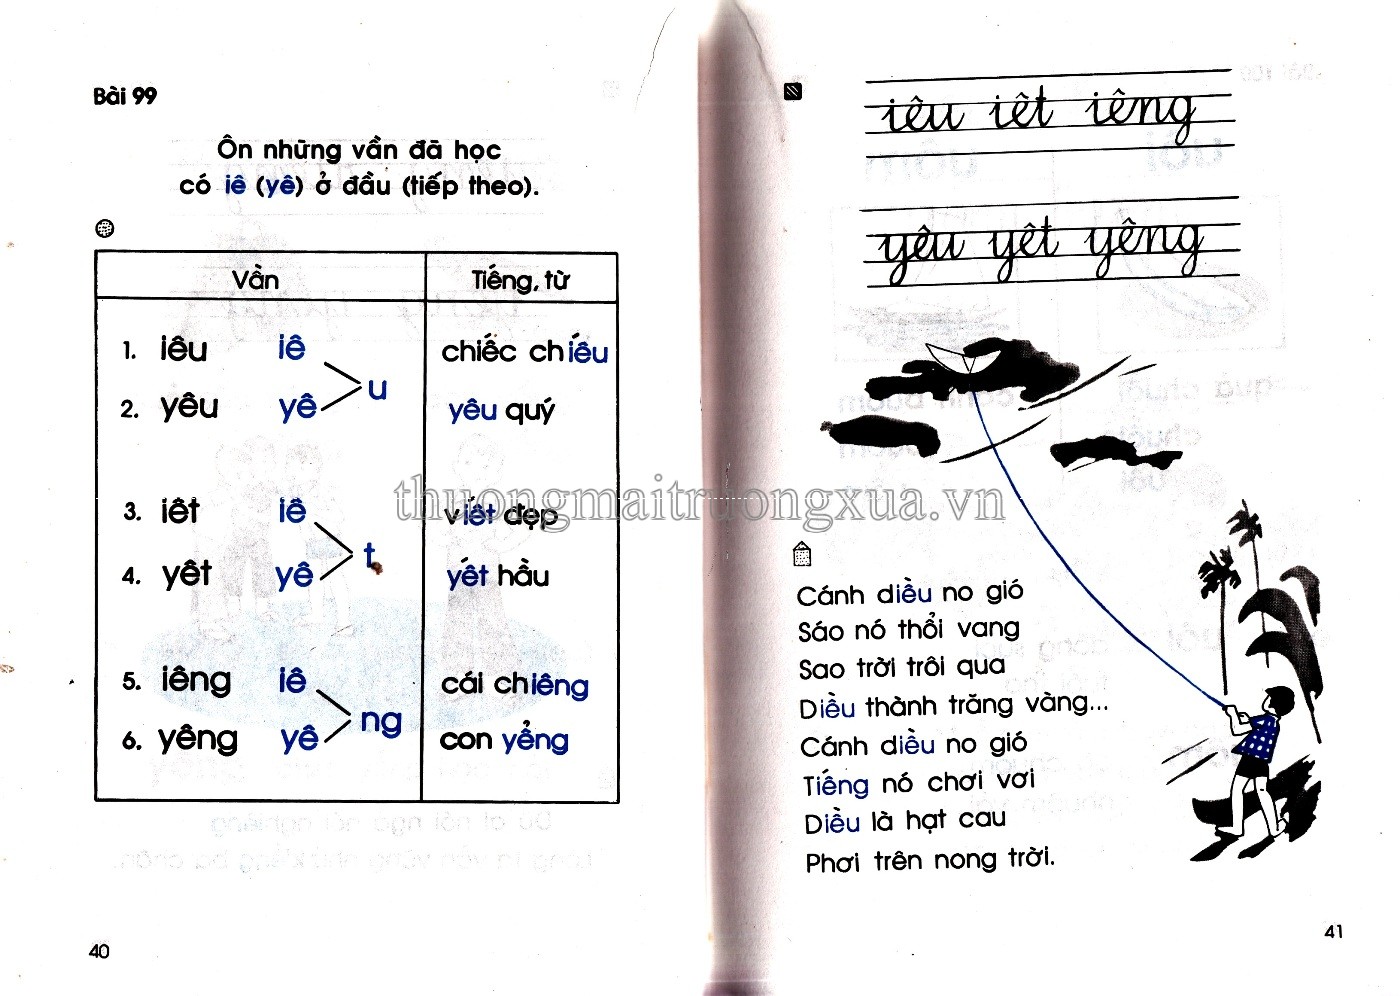 Bài 99
Ôn những vần đã học
có iê (yê) ở đầu (tiếp theo).
Vần Tiếng, từ
1. iêu iê chiếc chiếu
u
2. yêu yê yêu quý
3. iêt iê viết đẹp
t
4. yêt yê yết hầu
5. iêng iê cái chiêng
ng
6. yêng yê con yểng
40
iêu iêt iêng
yêu yêt yêng
Cánh diều no gió
Sáo nó thổi vang
Sao trời trôi qua
Diều thành trăng vàng...
Cánh diều no gió
Tiếng nó chơi vơi
Diều là hạt cau
Phơi trên nong trời.
41
thuongmaitruongxua.vn